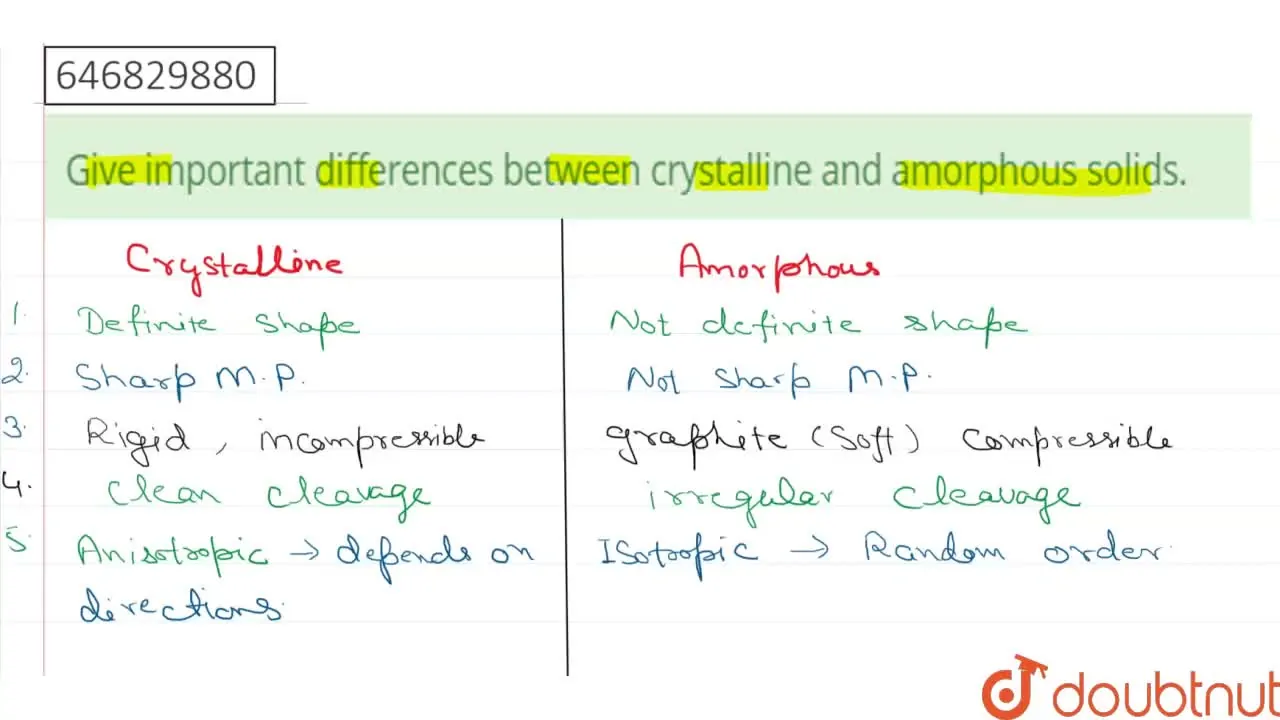 646829880
Give important differences between crystalline and amorphous solids.
Crystalline Amorphous
1. Definite shape Not definite shape
2. Sharp M.P. Not sharp M.P.
3. Rigid, incompressible graphite (Soft) compressible
4. Clean cleavage irregular cleavage
5. Anisotropic → depends on Isotropic → Random order
directions
doubtnut